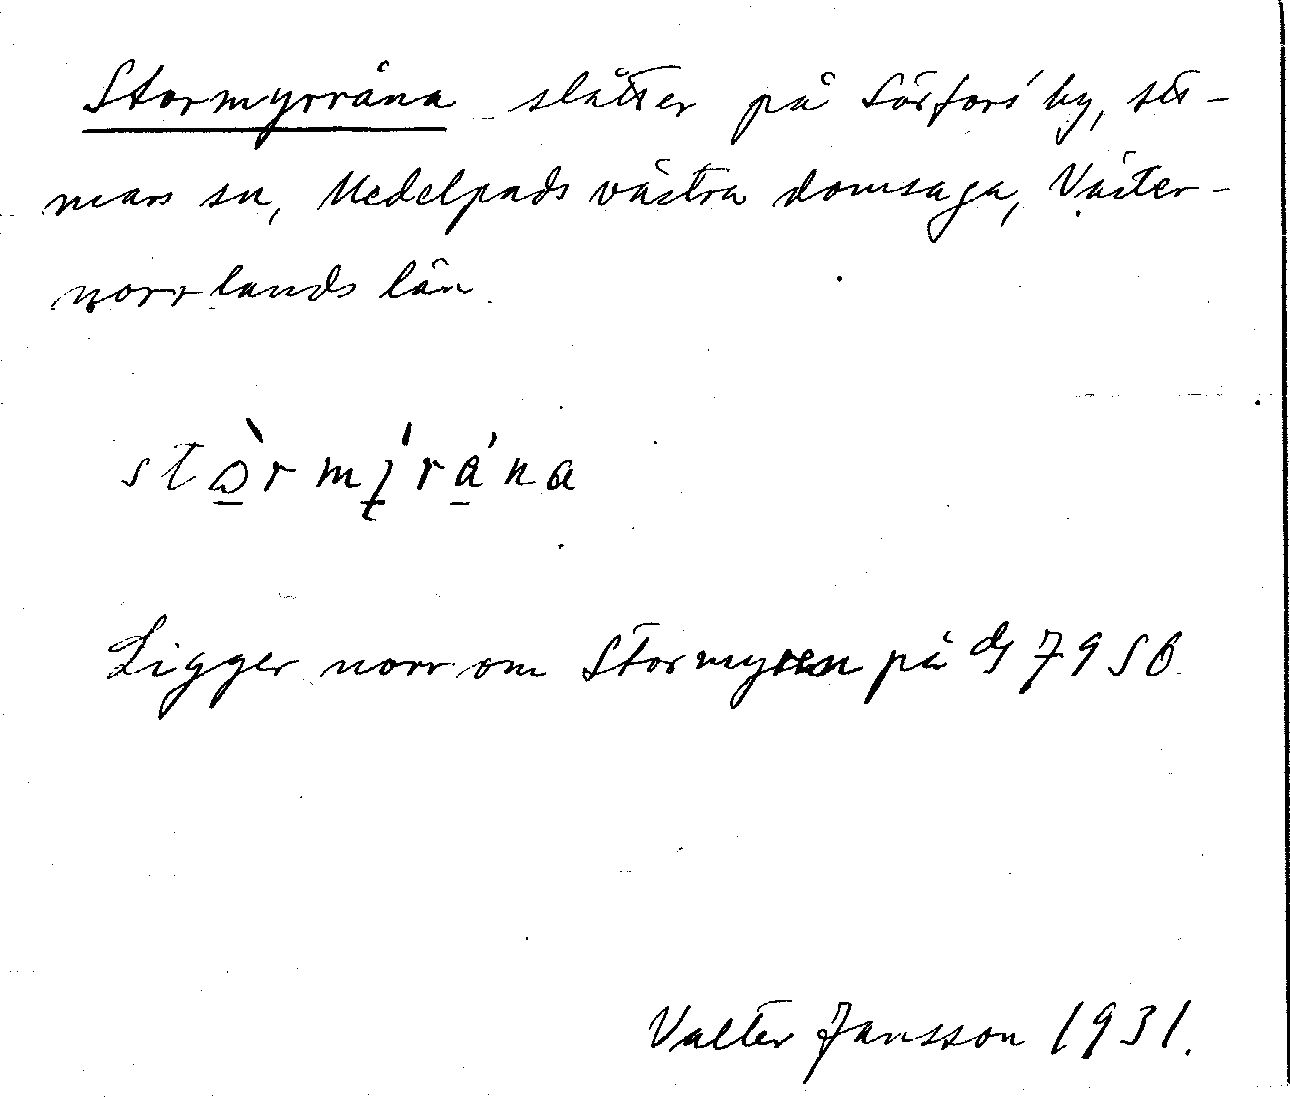 Stormyrråna slåtter på Sörfors' by, Att-
mars sn, Medelpads västra domsaga, Väster-
norrlands län.
Ligger norr om Stormyren på dj 79 56.
Valter Jansson 1931.